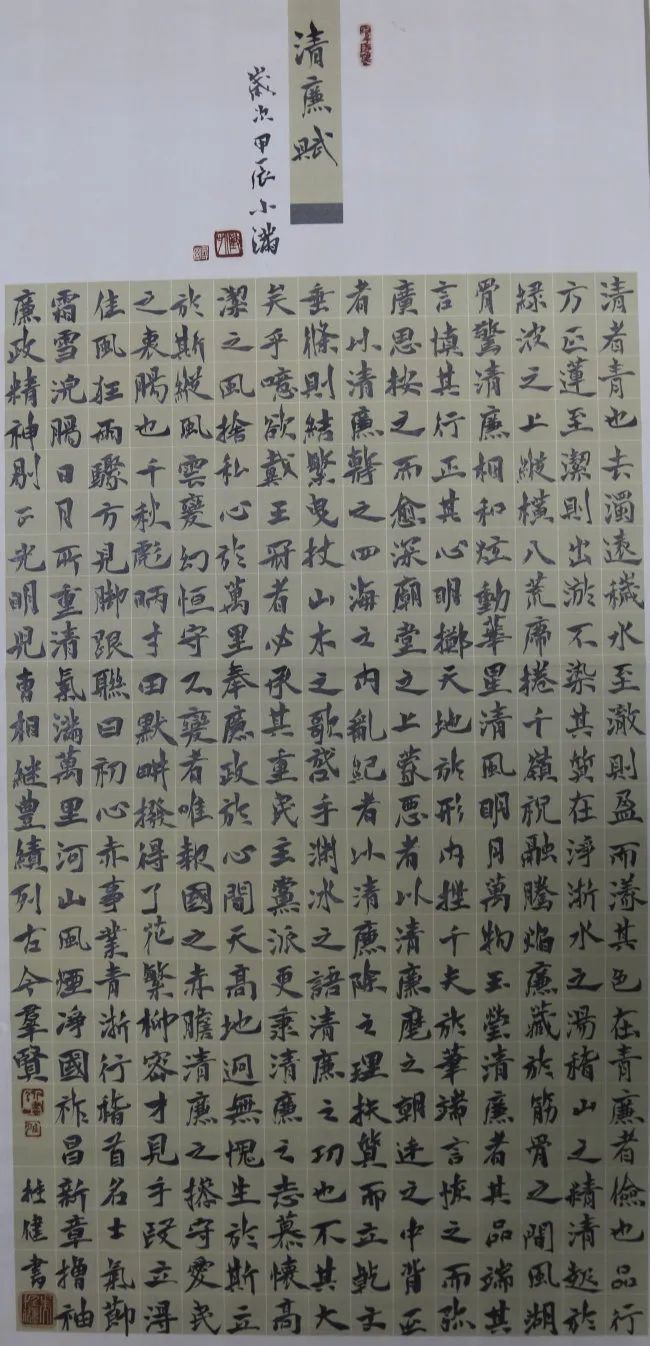 清廉賦
歲次甲辰小滿
清者青也去濁遠穢水至澈則盈而漾其色在青廉者儉也品行
方正蓮至潔則出淤不染其質在淨浙水之湯稽山之精清起於
綠波之上縱橫八荒席捲千嶺祝融騰焰廉藏於筋骨之間風湖
骨鑒清廉相和炫動華星清風明月萬物玉瑩清廉者其品端其
言慎其行正其心明擲天地於形內挫千夫於筆端言恢之而弥
廣思按之而愈深廟堂之上蒙惡者以清廉麾之朝逵之中背正
者以清廉斃之四海之內亂紀者以清廉除之理扶質而立乾文
垂條則結繁曳杖山木之歌啓手淵冰之語清廉之功也不其大
矣乎噫欲戴王冠者必承其重民主黨派更秉清廉之志慕懷高
潔之風捨私心於萬里奉廉政於心間天高地迥無愧生於斯立
於斯縱風雲變幻恒守不變者唯報國之赤膽清廉之操守愛民
之衷腸也千秋彪炳寸田默畊撥得了花繁柳密才見手段立得
住風狂雨驟方見脚跟聯曰初心赤事業青浙行稽首名士氣節
霜雪浣腸日月所重清氣滿萬里河山風煙淨國祚昌新章擼袖
廉政精神剔正光明兒曹相繼豐績列古今羣賢
健書